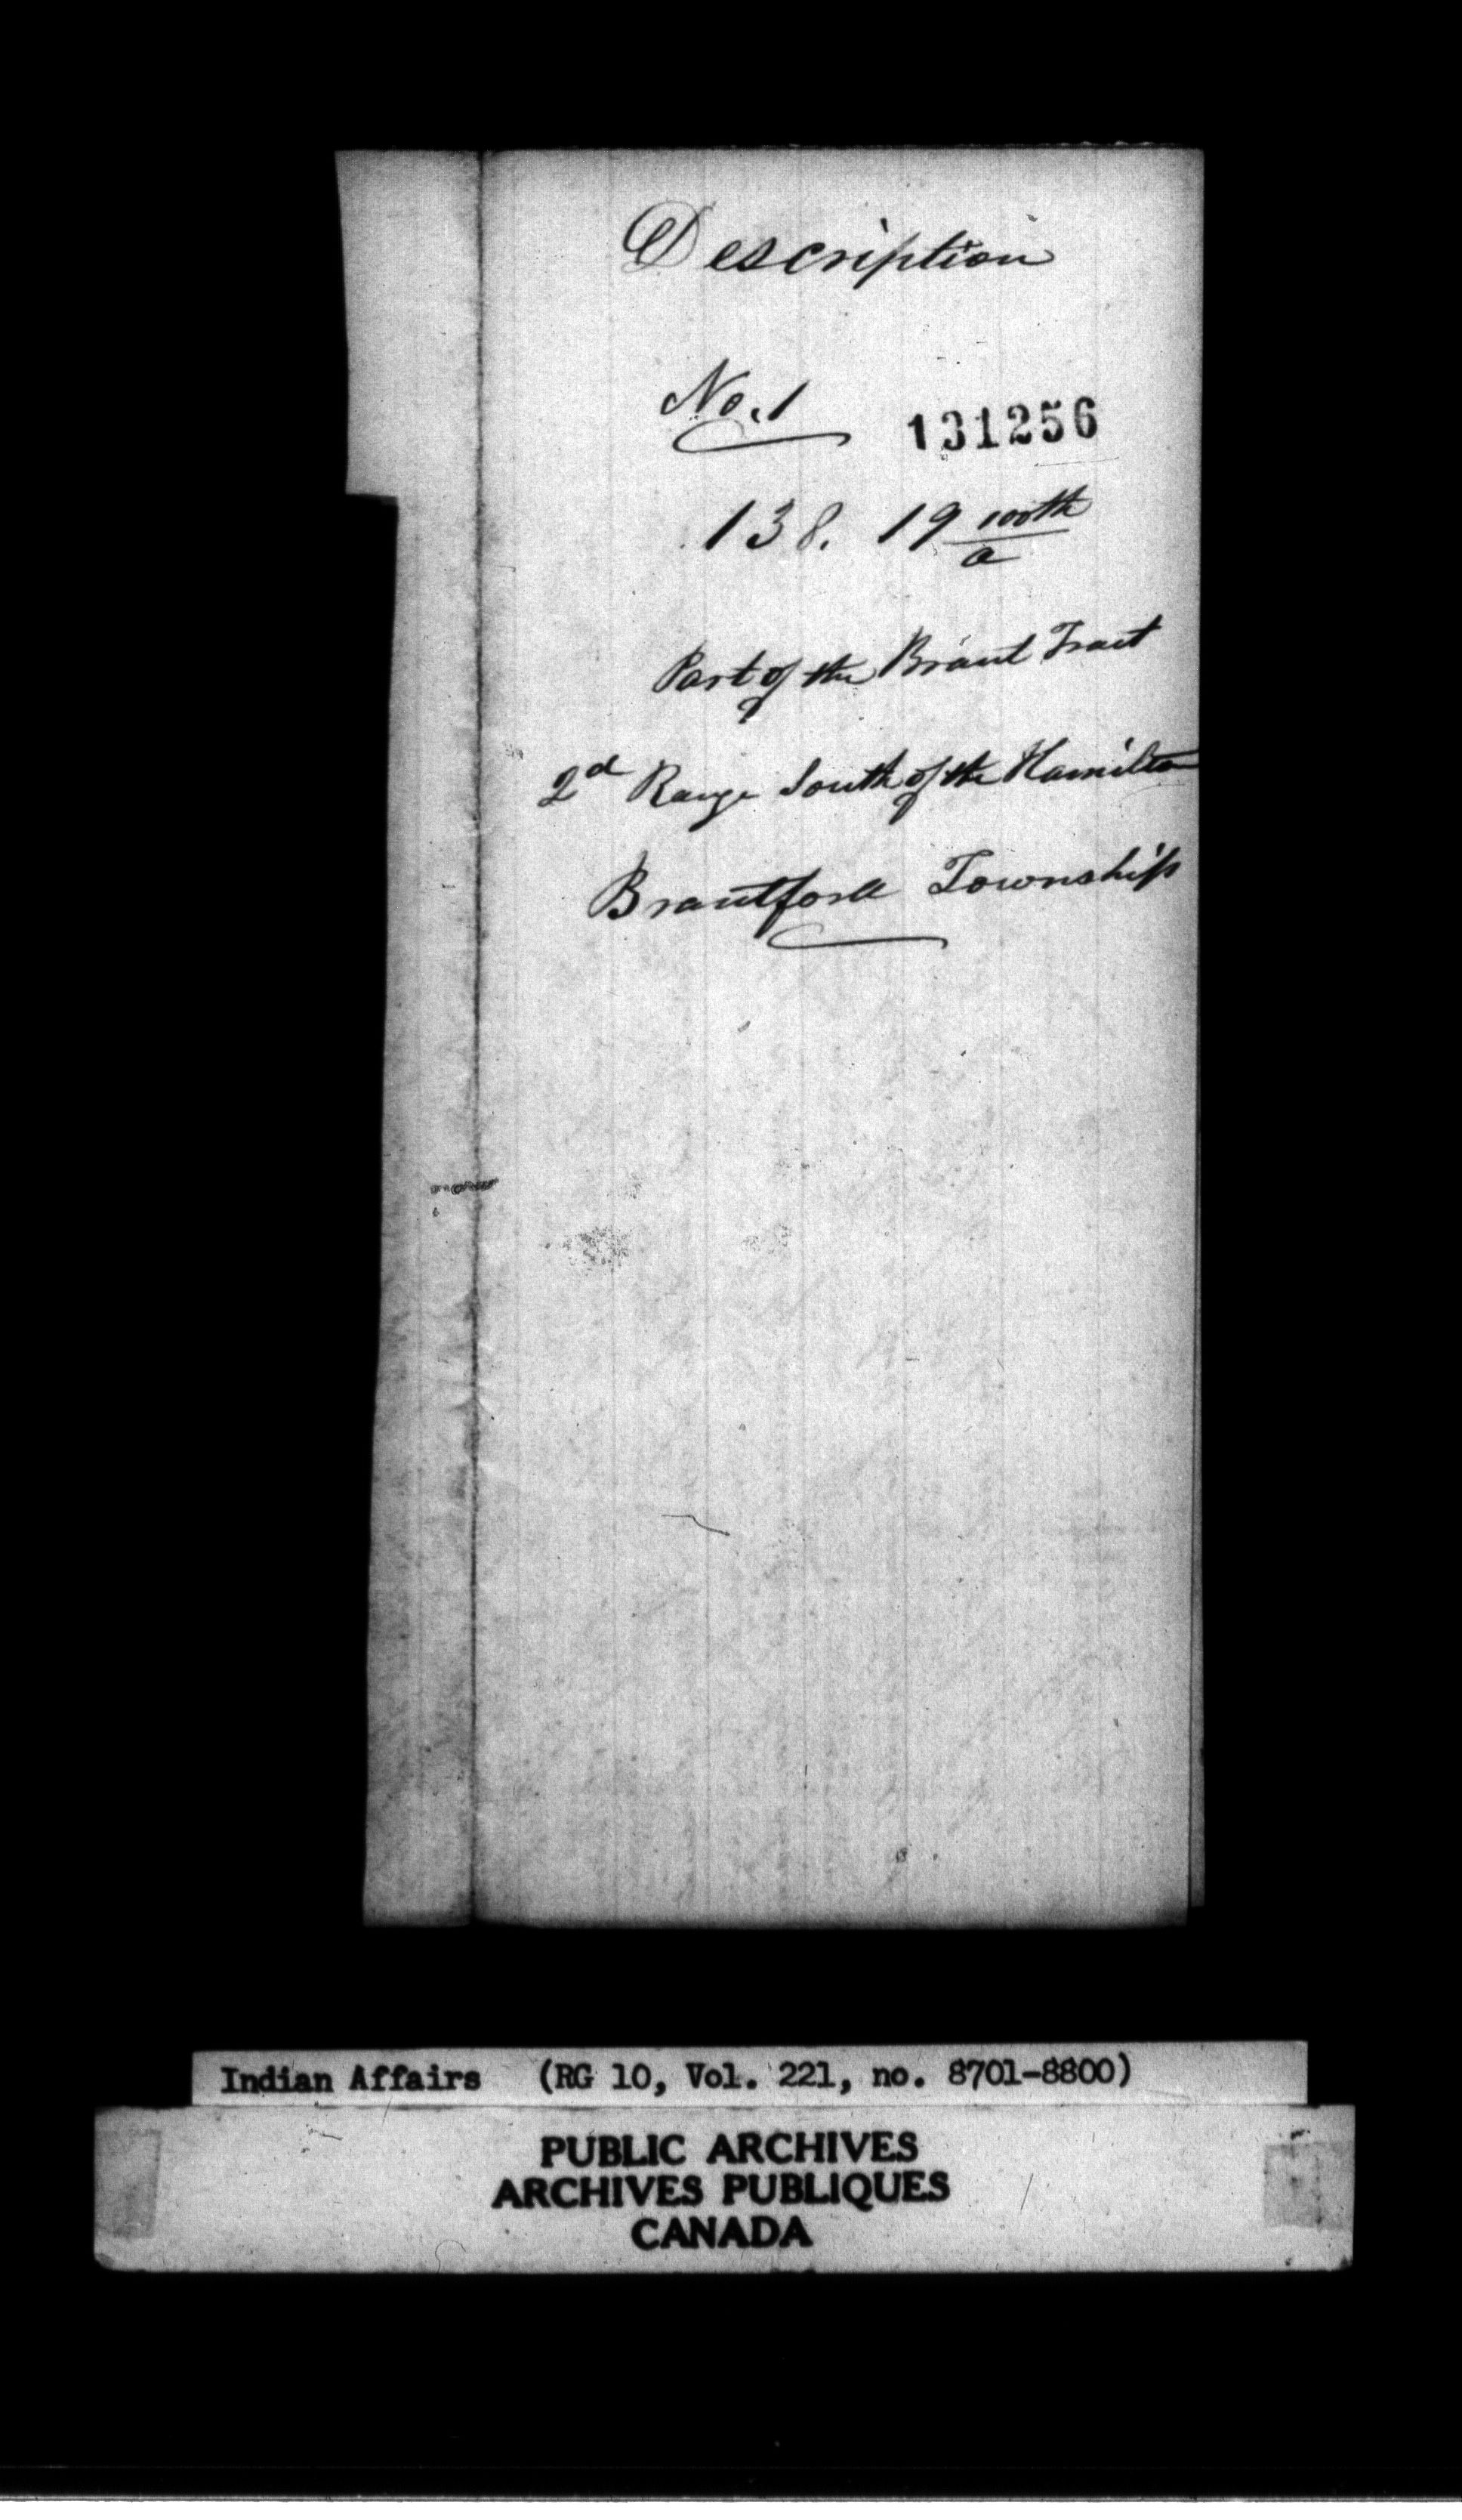 Description
No. 1
131256
138. 19 100th/a
Part of the Brant Tract
2d Range South of the Hamilton
Brantford Township
Indian Affairs (RG 10, Vol. 221, no. 8701-8800)
PUBLIC ARCHIVES
ARCHIVES PUBLIQUES
CANADA